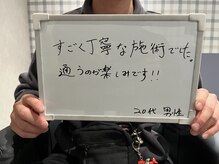 すごく丁寧な施術でした。
通うのが楽しみです!!
20代 男性